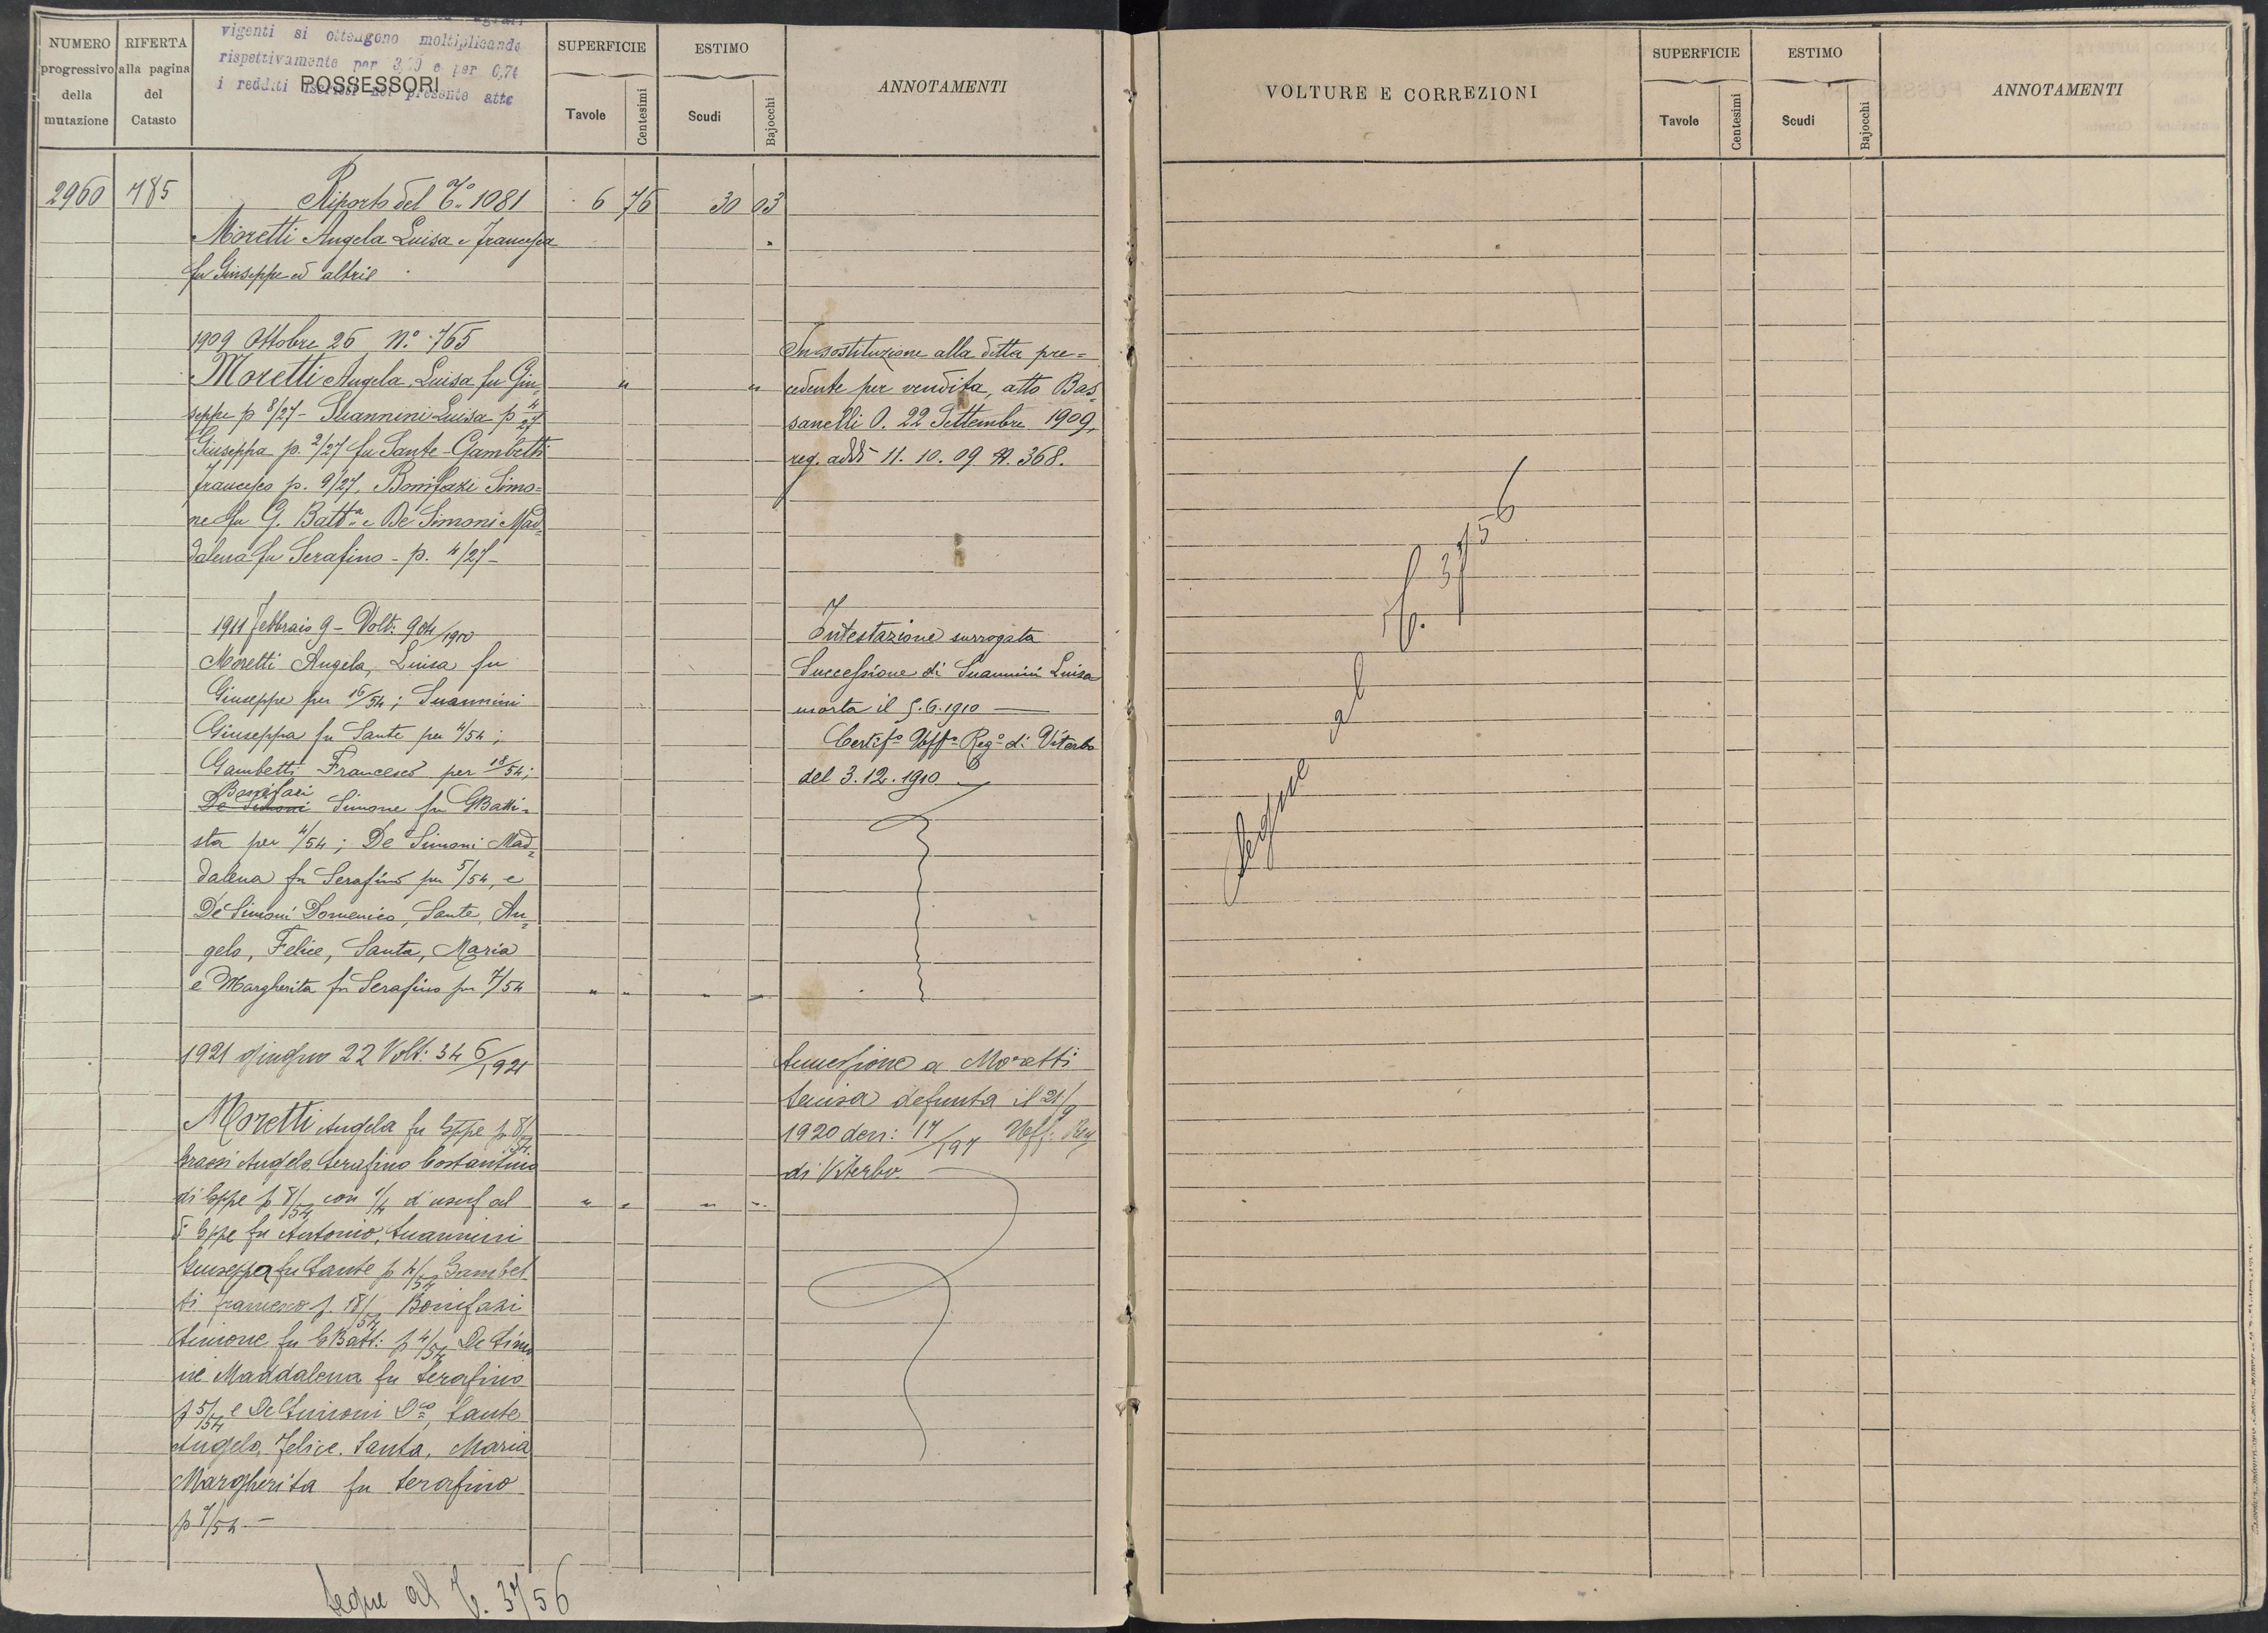 vigenti si ottengono moltiplicando
rispettivamente per e per 0,74
i redditi iscritti nel presente atto
NUMERO progressivo della mutazione
RIFERTA alla pagina del Catasto
POSSESSORI
SUPERFICIE
Tavole
Centesimi
ESTIMO
Scudi
Bajocchi
ANNOTAMENTI
2960 785 Riporto del T.º 1081 6 76 30 03
Moretti Angela Luisa e Francesca
fu Giuseppe ed altri
1909 Ottobre 26 N.º 765
Moretti Angela, Luisa fu Giu
seppe p 8/27 - Suannini Luisa p 4/27
Giuseppa p. 2/27 fu Sante - Gambetti
Francesco p. 9/27, Bonifazi Simo=
ne fu G. Batt.a e De Simoni Mad
dalena fu Serafino - p. 4/27 -
In sostituzione alla ditta pre=
cedente per vendita, atto Bas
sanelli O. 22 Settembre 1909,
reg. addì 11. 10. 09 N. 368.
1911 Febbraio 9 - Volt: 904/1900
Moretti Angela, Luisa fu
Giuseppe per 16/54; Suannini
Giuseppa fu Sante per 4/54;
Gambetti Francesco per 18/54;
Bonifazi
De Simoni Simone fu GBatti=
sta per 4/54; De Simoni Mad=
dalena fu Serafino per 5/54, e
De Simoni Domenico, Sante, An=
gelo, Felice, Santa, Maria
e Margherita fu Serafino per 7/54
Intestazione surrogata
Successione di Suannini Luisa
morta il 5.6.1910 —
Certif.º Uff.º Reg.º di Viterbo
del 3.12.1910
1921 giugno 22 Volt: 34 6/921
Moretti Angela fu Gppe p 8/54
Grassi Angelo Serafino Costantino
di Gppe p 8/54 con 1/4 d'usuf al
d. Gppe fu Antonio, Suannini
Giuseppa fu Sante p 4/54 Gambet
ti Francesco p. 18/54 Bonifazi
Simone fu GBatt: p 4/54 De Simo
ne Maddalena fu Serafino
p 5/54 e De Simoni D.co, Sante
Angelo, Felice, Santa, Maria
Margherita fu Serafino
p 7/54 —
Successione a Moretti
Luisa defunta il 21/9
1920 den: 17/197 Uff. Reg
di Viterbo.
segue al T. 3756
VOLTURE E CORREZIONI
SUPERFICIE
Tavole
Centesimi
ESTIMO
Scudi
Bajocchi
ANNOTAMENTI
segue al T. 3756